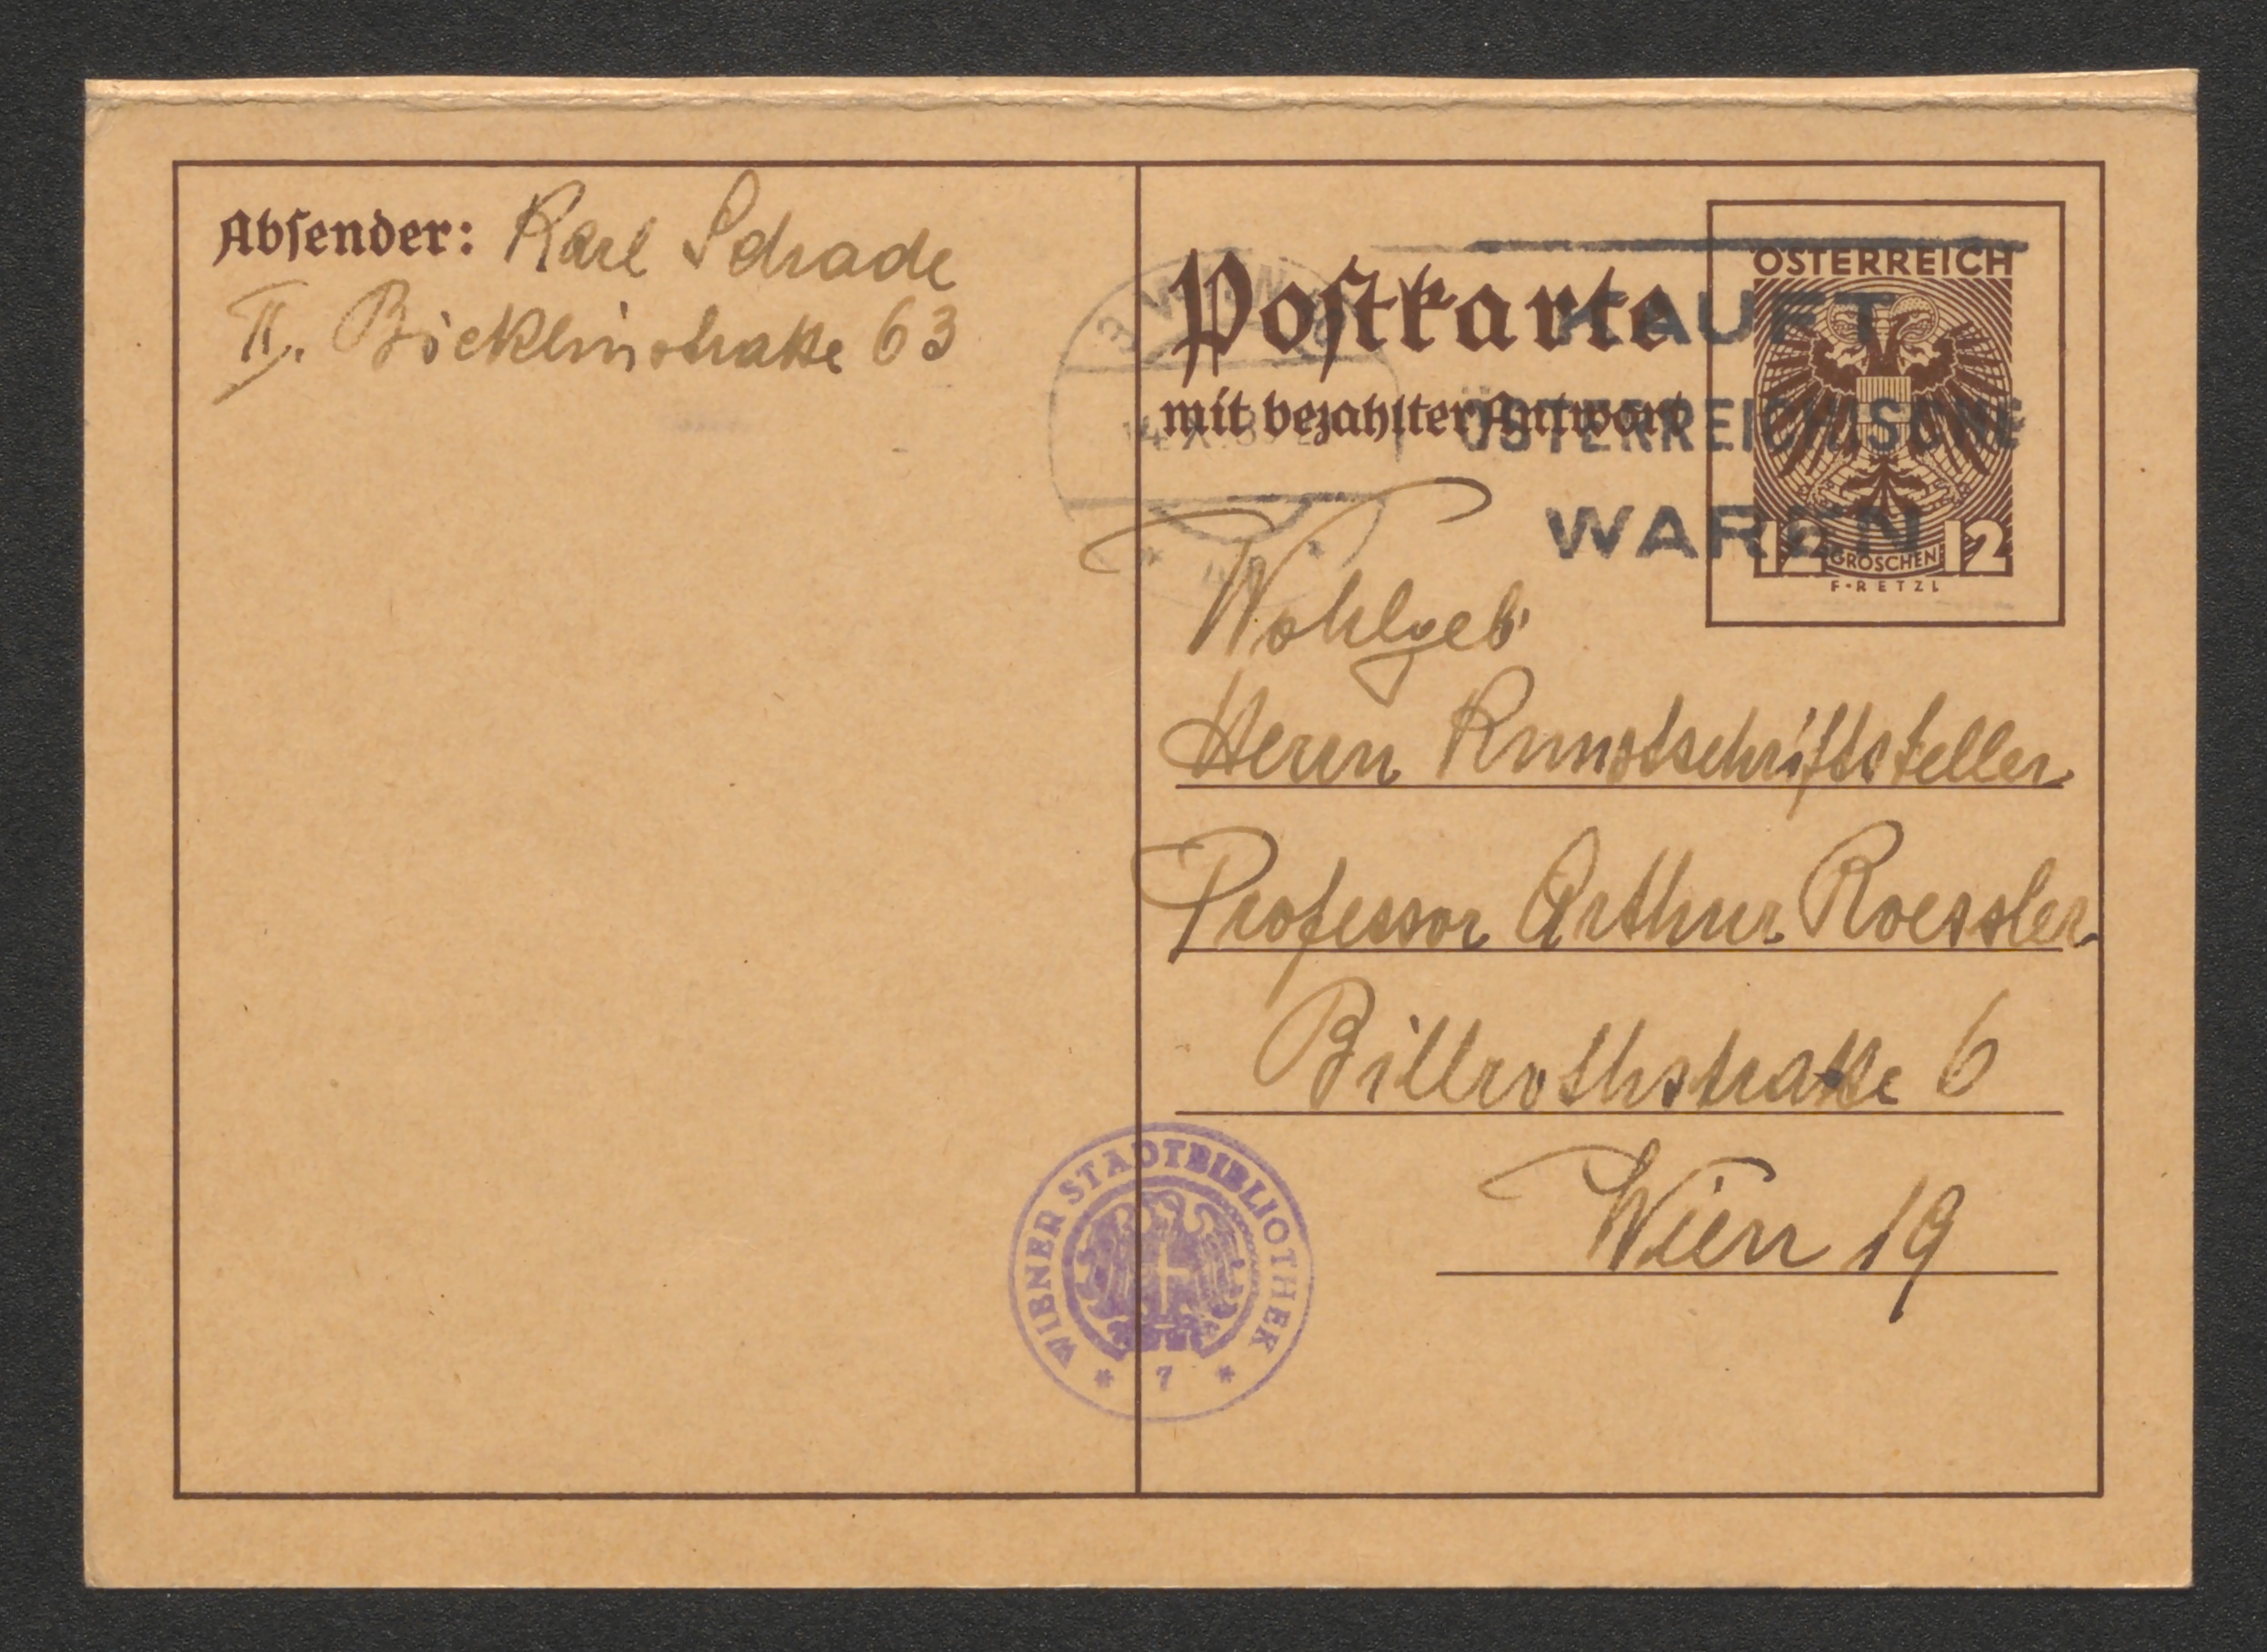 Absender: Karl Schade
II. Böcklinstrasse 63
Postkarte
mit bezahlter Antwort
ÖSTERREICH
12 GROSCHEN 12
F·RETZL
KAUFT
ÖSTERREICHISCHE
WAREN
WIEN
Wohlgeb.
Herrn Kunstschriftsteller
Professor Arthur Roessler
Billrothstrasse 6
Wien 19
WIENER STADTBIBLIOTHEK
* 7 *